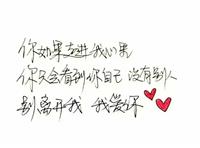 你如果走进我心里
你只会看到你自己 没有别人
别离开我 我爱你